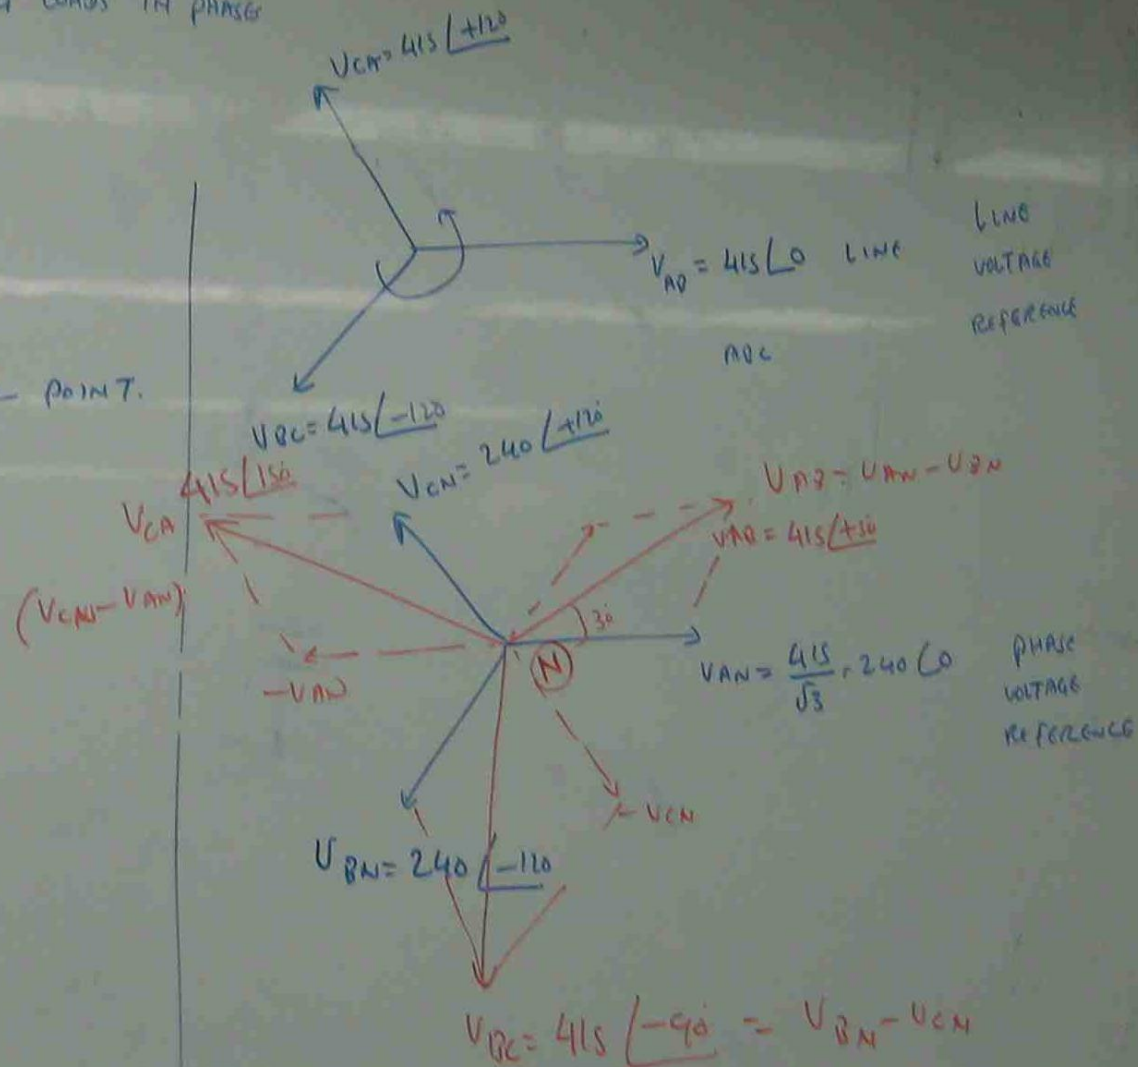 LOADS IN PHASE
VCA = 415 ∠+120°
VAB = 415 ∠0 LINE
LINE
VOLTAGE
REFERENCE
ABC
- POINT.
VBC = 415 ∠-120
VCN = 240 ∠+120°
415 ∠150°
VCA
(VCN - VAN)
VAB = VAN - VBN
VAB = 415 ∠+30°
30°
N
-VAN
VAN = 415/√3 = 240 ∠0
PHASE
VOLTAGE
REFERENCE
-VCN
VBN = 240 ∠-120
VBC = 415 ∠-90° = VBN - VCN